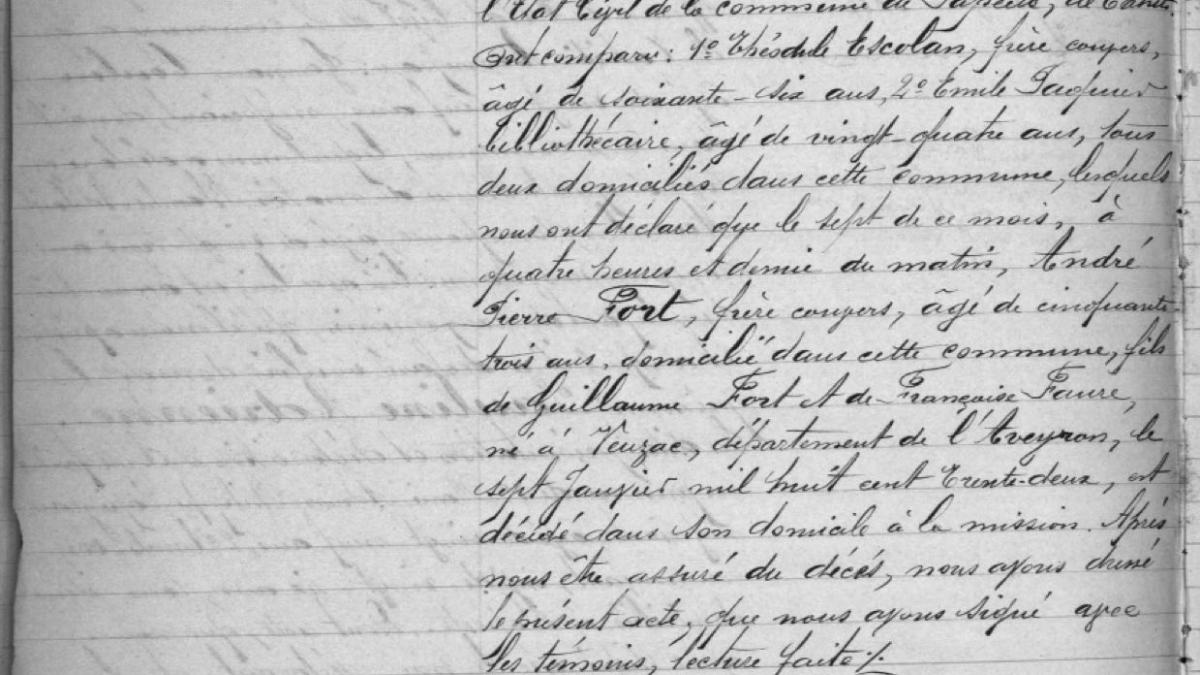 l'Etat Civil de la commune de Papeete, de Tahiti
Ont comparu : 1º Théodule Escolan, frère convers,
âgé de soixante-six ans, 2º Emile
bibliothécaire, âgé de vingt-quatre ans, tous
deux domiciliés dans cette commune, lesquels
nous ont déclaré que le sept de ce mois, à
quatre heures et demie du matin, André
Pierre Fort, frère convers, âgé de cinquante-
trois ans, domicilié dans cette commune, fils
de Guillaume Fort et de Françoise Faure,
né à Veuzac, département de l'Aveyron, le
sept Janvier mil huit cent trente-deux, est
décédé dans son domicile à la mission. Après
nous être assuré du décès, nous avons dressé
le présent acte, que nous avons signé avec
les témoins, lecture faite ./.